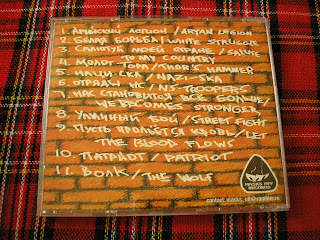 1. Арийский легион / ARYAN LEGION
2. Белая борьба / WHITE STRUGGLE
3. Салютуй моей стране / SALUTE
TO MY COUNTRY
4. Молот Тора / THOR'S HAMMER
5. Наци-ска / NAZI-SKA
6. Отряды НС / NS TROOPERS
7. Нас становится всё больше/
WE BECOMES STRONGER
8. Уличный бой / STREET FIGHT
9. Пусть прольётся кровь / LET
THE BLOOD FLOWS
10. Патриот / PATRIOT
11. Волк / THE WOLF
MASKS OFF
RECORDS